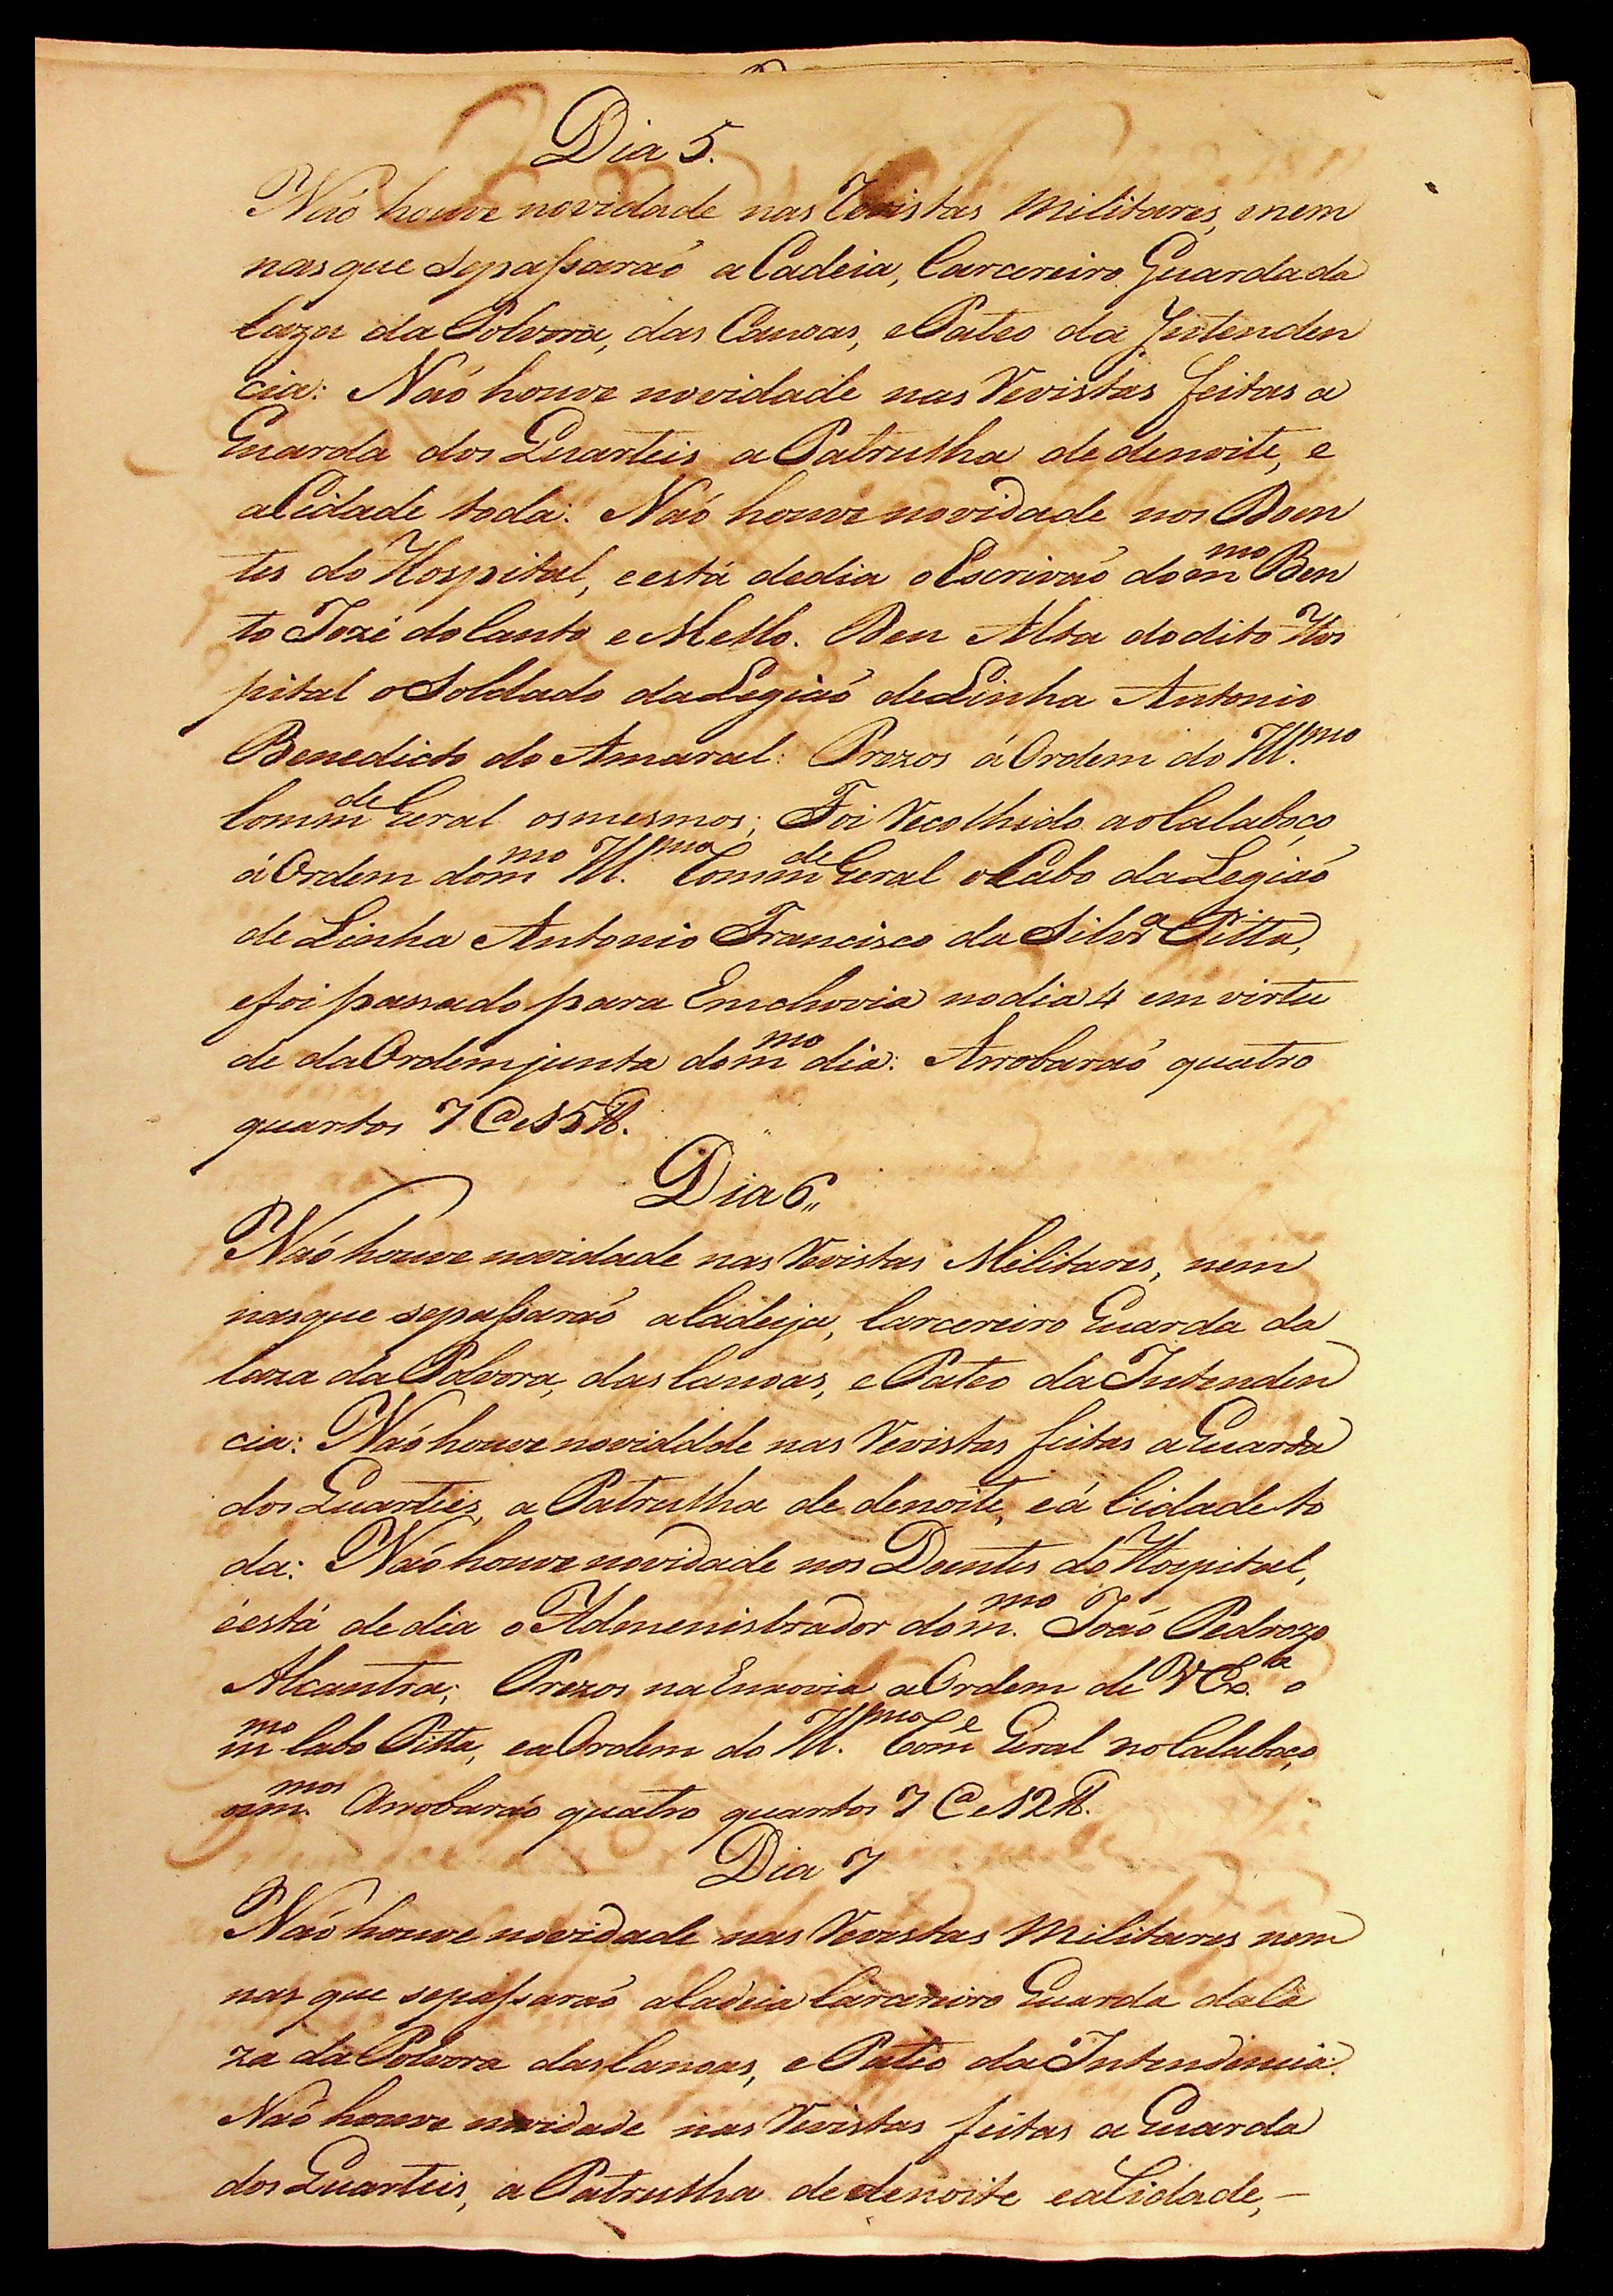 Dia 5.
Não houve novidade nas Revistas Militares, e nem
nas que sepassaraõ a Cadeia, Carcereiro Guarda da
Caza da Polvora, das Canoas, e Pateo da Intenden
cia: Naõ houve novidade nas Revistas feitas a
Guarda dos Quarteis a Patrulha dedenoite, e
a Cidade toda: Naõ houve novidade nos Doen
tes do Hospital, e está dedia o Escrivaõ do mmo Ben
to Jozé do Canto e Mello. Deu Alta dodito Hos
pital o Soldado da Legiaõ de Linha Antonio
Benedicto do Amaral: Prezos á Ordem do Ill.mo
Commde Geral osmesmos; Foi Recolhido ao Calaboço
á Ordem do mmo Ill.mo Commde Geral o Cabo da Legiaõ
de Linha Antonio Francisco da Silva Pitta,
e foi passado para Emchovia nodia 4 em virtu
de da Ordem junta do mmo dia: Arrobaraõ quatro
quartos 7 @ e 15 ℔.
Dia 6,,
Naõ houve novidade nas Revistas Militares, nem
nasque sepassaraõ a Cadeija, Carcereiro Guarda da
Caza da Polvora, das Canoas, e Pateo da Intenden
cia: Naõ houve noviddde nas Revistas feitas a Guarda
dos Quarteis, a Patrulha de denoite, e á Cidade to
da: Naõ houve novidade nos Doentes do Hospital,
é está de dia o Admenistrador do m.mo João Pedrozo
Alcantra; Prezos na Enxovia a Ordem de V Ex.a o
mmo Cabo Pitta, e a Ordem do Ill.mo Come Geral no Calaboço,
os m.mos Arrobaraõ quatro quartos 7 @ e 12 ℔.
Dia 7
Naõ houve novidade nas Revestas Militares nem
nas que sepassaraõ a Cadeia Carcereiro Guarda da Ca
za da Polvora das Canoas, e Pateo da Intendencia.
Naõ houve novidade nas Revistas feitas a Guarda
dos Quarteis, a Patrulha dedenoite e a Cidade, –